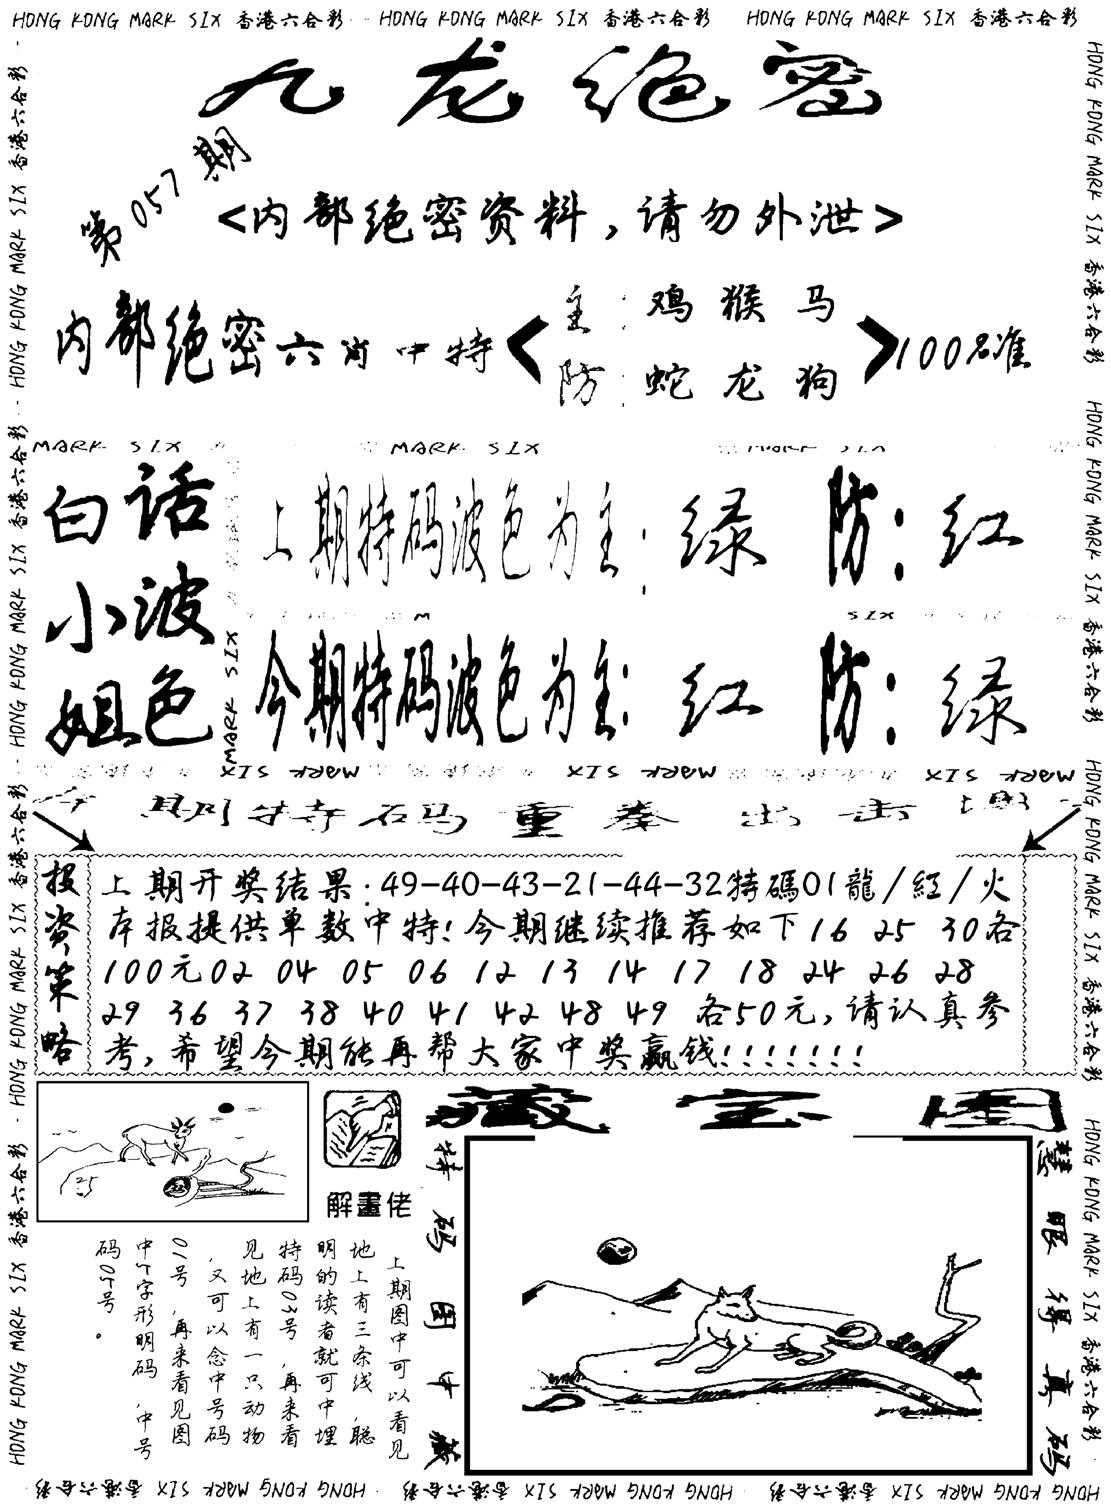 HONG KONG MARK SIX 香港六合彩 HONG KONG MARK SIX 香港六合彩 HONG KONG MARK SIX 香港六合彩
九龙绝密
第057期
<内部绝密资料，请勿外泄>
内部绝密六肖中特
主：鸡猴马
防：蛇龙狗
100%准
MARK SIX MARK SIX MARK SIX
白话
小波
姐色
上期特码波色为主：绿 防：红
MARK SIX
今期特码波色为主：红 防：绿
MARK SIX MARK SIX MARK SIX
期特码重拳出击
投资策略
上期开奖结果:49-40-43-21-44-32特碼01龍/紅/火
本报提供单数中特!今期继续推荐如下16 25 30各
100元02 04 05 06 12 13 14 17 18 24 26 28
29 36 37 38 40 41 42 48 49 各50元,请认真参
考,希望今期能再帮大家中奖赢钱!!!!!!!
藏宝图
解畫佬
特码图中藏
慧眼得真码
上期图中可以看见
地上有三条线,聪
明的读者就可中埋
特码03号,再来看
见地上有一只动物
,又可以念中号码
01号,再来看见图
中字形明码,中号
码09号。
HONG KONG MARK SIX 香港六合彩 HONG KONG MARK SIX 香港六合彩 HONG KONG MARK SIX 香港六合彩 HONG KONG MARK SIX 香港六合彩
HONG KONG MARK SIX 香港六合彩 HONG KONG MARK SIX 香港六合彩 HONG KONG MARK SIX 香港六合彩 HONG KONG MARK SIX 香港六合彩
HONG KONG MARK SIX 香港六合彩 HONG KONG MARK SIX 香港六合彩 HONG KONG MARK SIX 香港六合彩